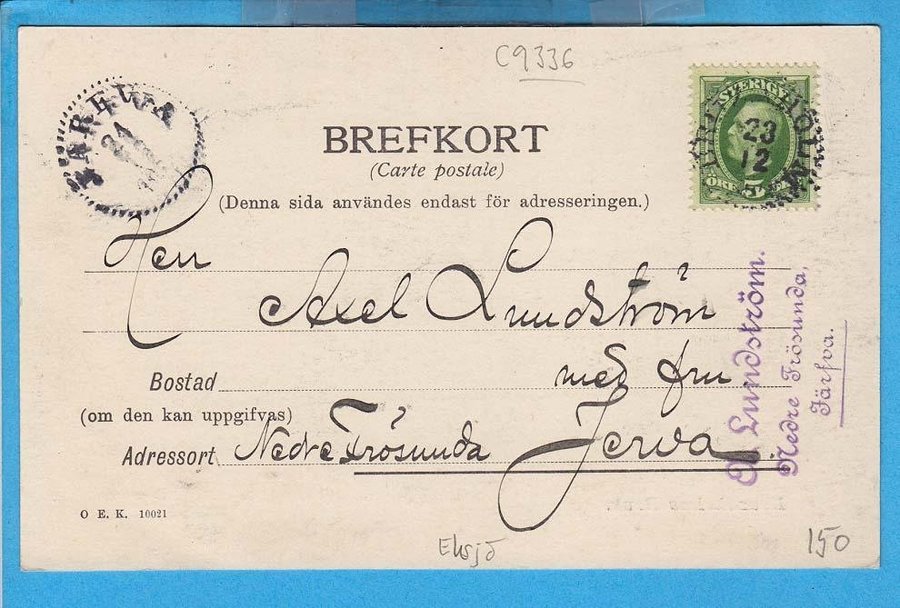 C9336
JAREWA
21
SVERIGE
23
12
ÖRE 5
BREFKORT
(Carte postale)
(Denna sida användes endast för adresseringen.)
Herr
Axel Lundström
Bostad med fru
(om den kan uppgifvas)
Adressort Nedre Frösunda Jerva.
A Lundström.
Nedre Frösunda,
Järfva.
O E. K. 10021
Eksjö
150